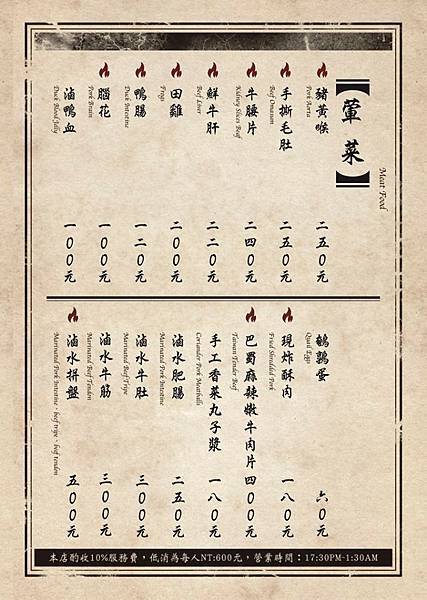 【葷菜】
Meat Food
豬黃喉 二五〇元
Pork Aorta
手撕毛肚 二五〇元
Beef Omasum
牛腰片 二四〇元
Kidney Slices Beef
鮮牛肝 二二〇元
Beef Liver
田雞 二〇〇元
Frogs
鴨腸 一二〇元
Duck Intestine
腦花 一〇〇元
Pork Brain
滷鴨血 一〇〇元
Duck Blood Jelly
鵪鶉蛋 六〇元
Quail Eggs
現炸酥肉 一八〇元
Fried Shredded Pork
巴蜀麻辣嫩牛肉片 四〇〇元
Taiwan Tender Beef
手工香菜丸子漿 一八〇元
Coriander Pork Meatballs
滷水肥腸 二五〇元
Marinated Pork Intestine
滷水牛肚 三〇〇元
Marinated Beef Tripe
滷水牛筋 三〇〇元
Marinated Beef Tendon
滷水拼盤 五〇〇元
Marinated Pork Intestine、beef tripe、beef tendon
本店酌收10%服務費，低消為每人NT:600元，營業時間：17:30PM~1:30AM